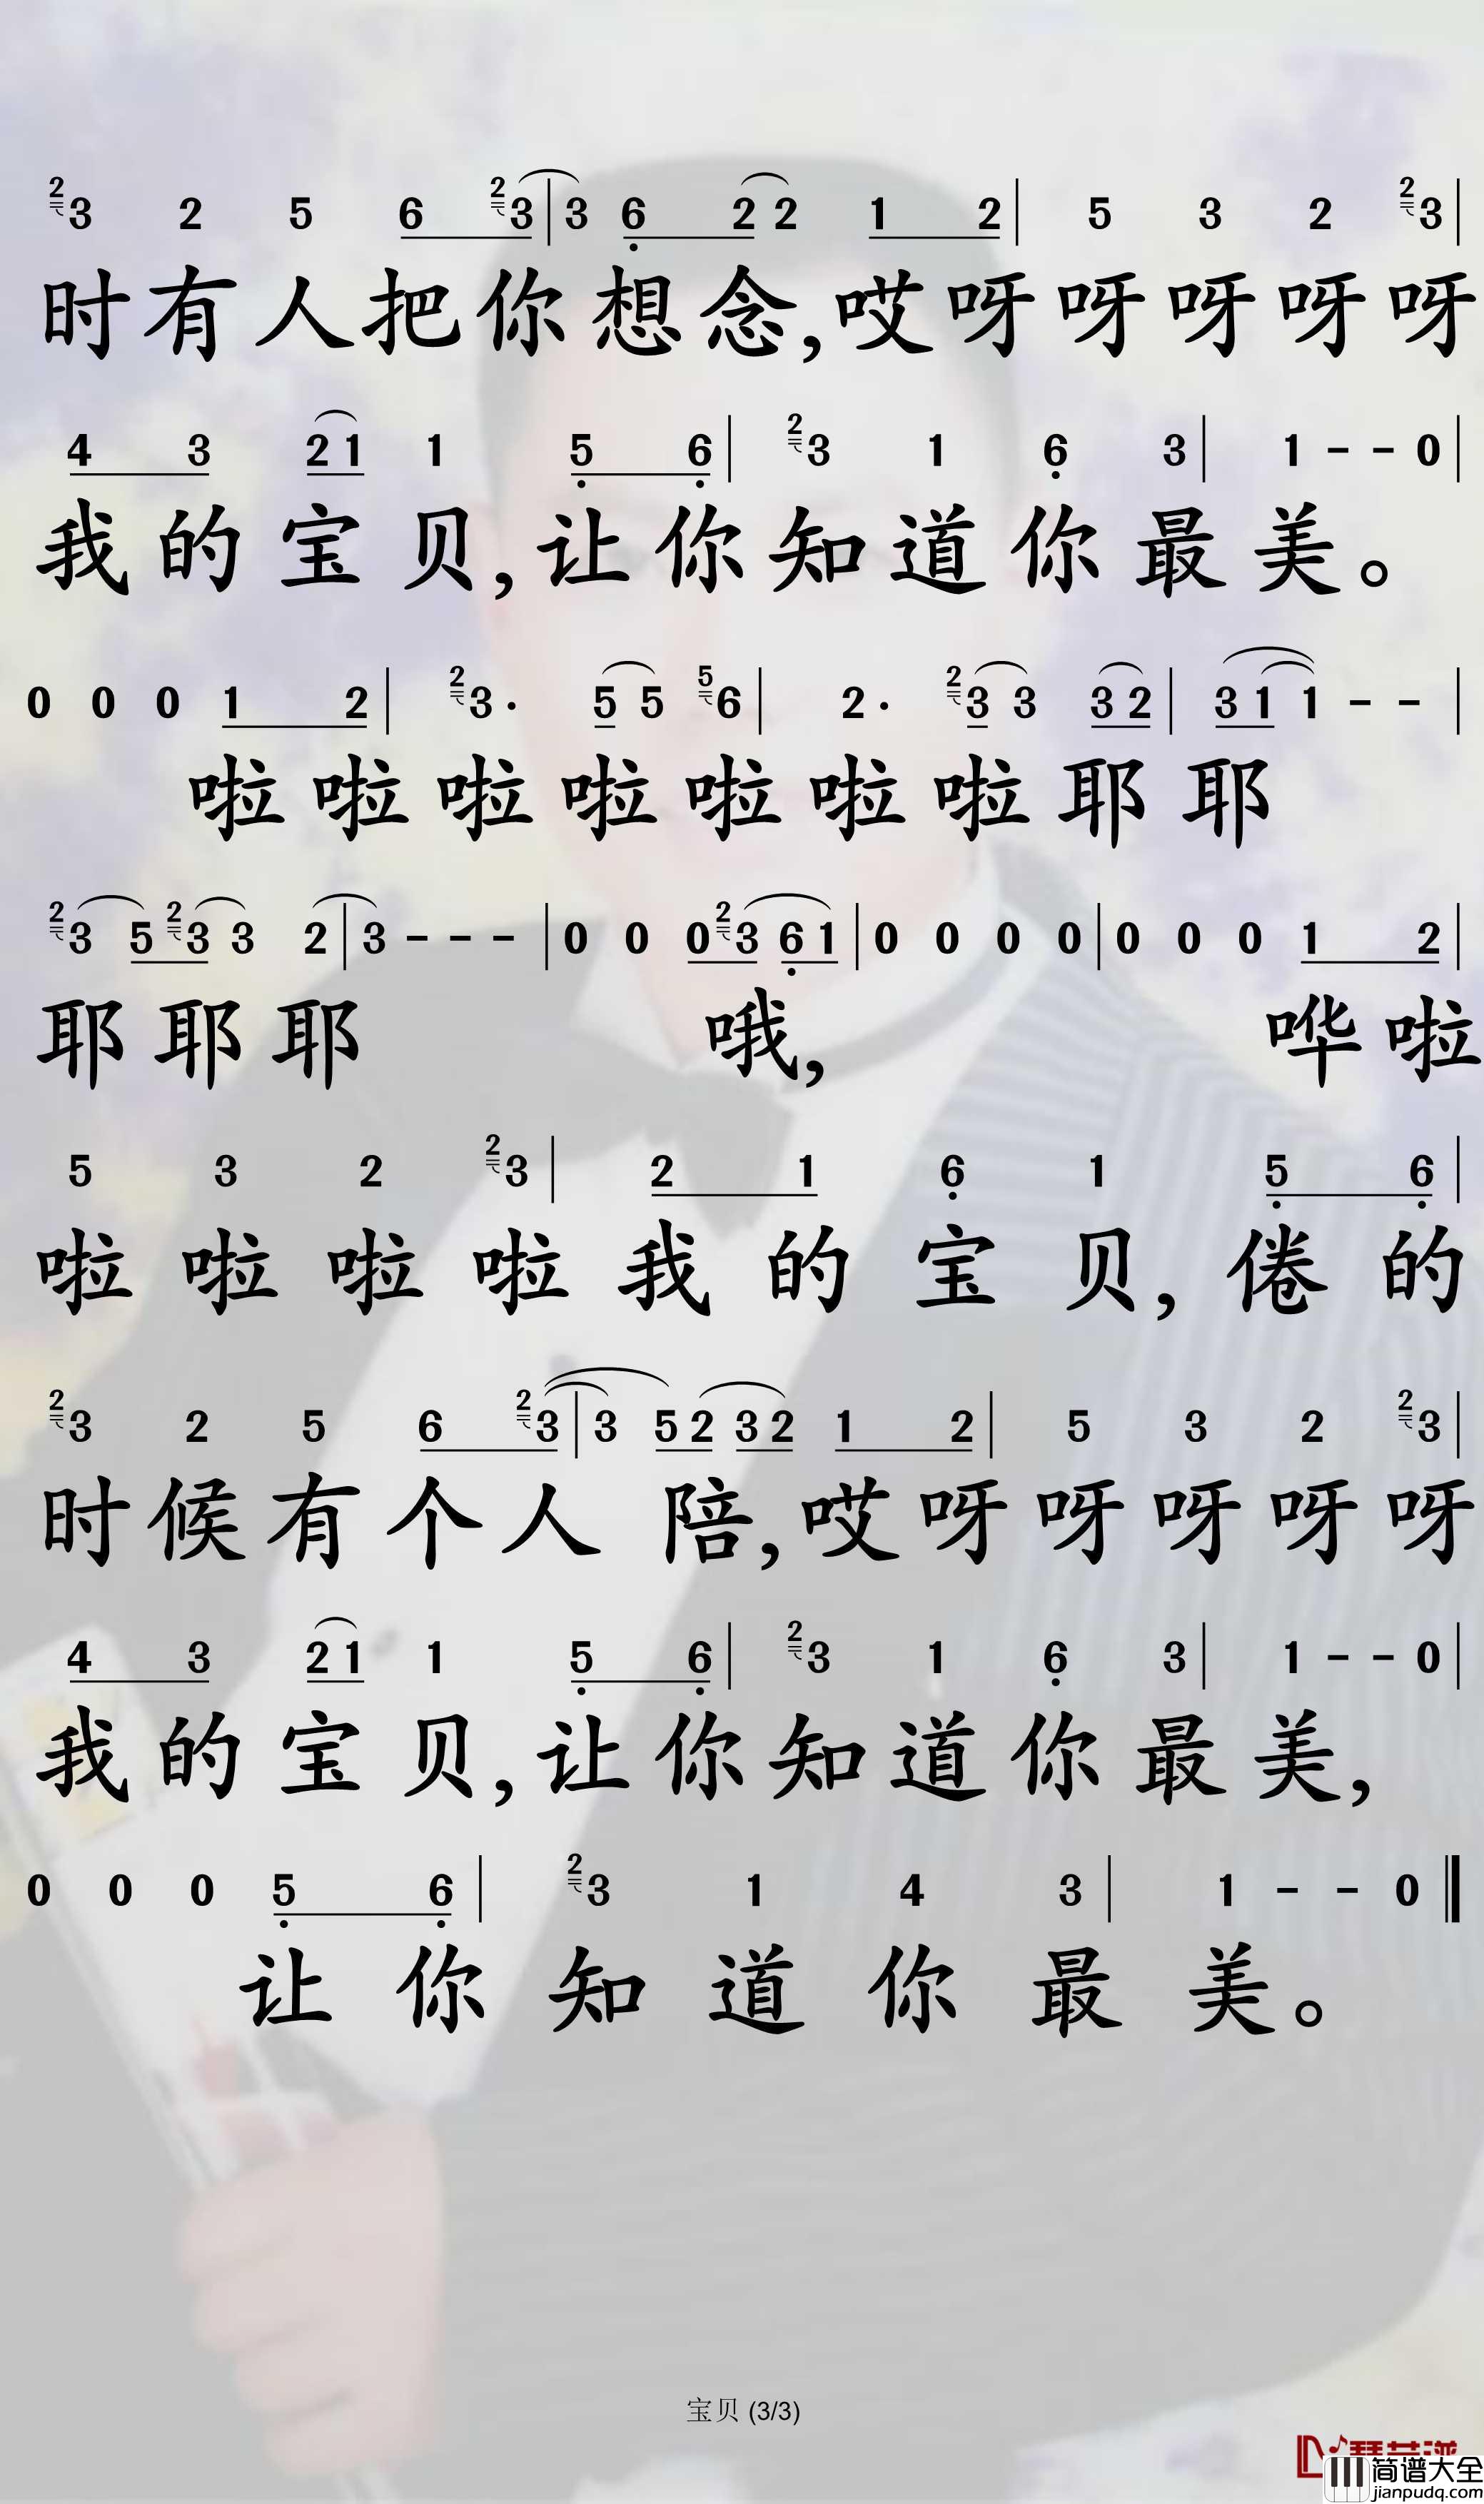 ²3 2 5 6 ²3 | 3 6 2 2 1 2 | 5 3 2 ²3 |
时有人把你想念,哎呀呀呀呀呀
4 3 2 1 1 5 6 | ²3 1 6 3 | 1 - - 0 |
我的宝贝,让你知道你最美。
0 0 0 1 2 | ²3· 5 5 ⁵6 | 2· ²3 3 3 2 | 3 1 1 - - |
啦啦啦啦啦啦啦耶耶
²3 5 ²3 3 2 | 3 - - - | 0 0 0 ²3 6 1 | 0 0 0 0 | 0 0 0 1 2 |
耶耶耶 哦, 哗啦
5 3 2 ²3 | 2 1 6 1 5 6 |
啦啦啦啦我的宝贝,倦的
²3 2 5 6 ²3 | 3 5 2 3 2 1 2 | 5 3 2 ²3 |
时候有个人陪,哎呀呀呀呀呀
4 3 2 1 1 5 6 | ²3 1 6 3 | 1 - - 0 |
我的宝贝,让你知道你最美,
0 0 0 5 6 | ²3 1 4 3 | 1 - - 0
让你知道你最美。
宝贝 (3/3)
简谱大全
jianpudq.com